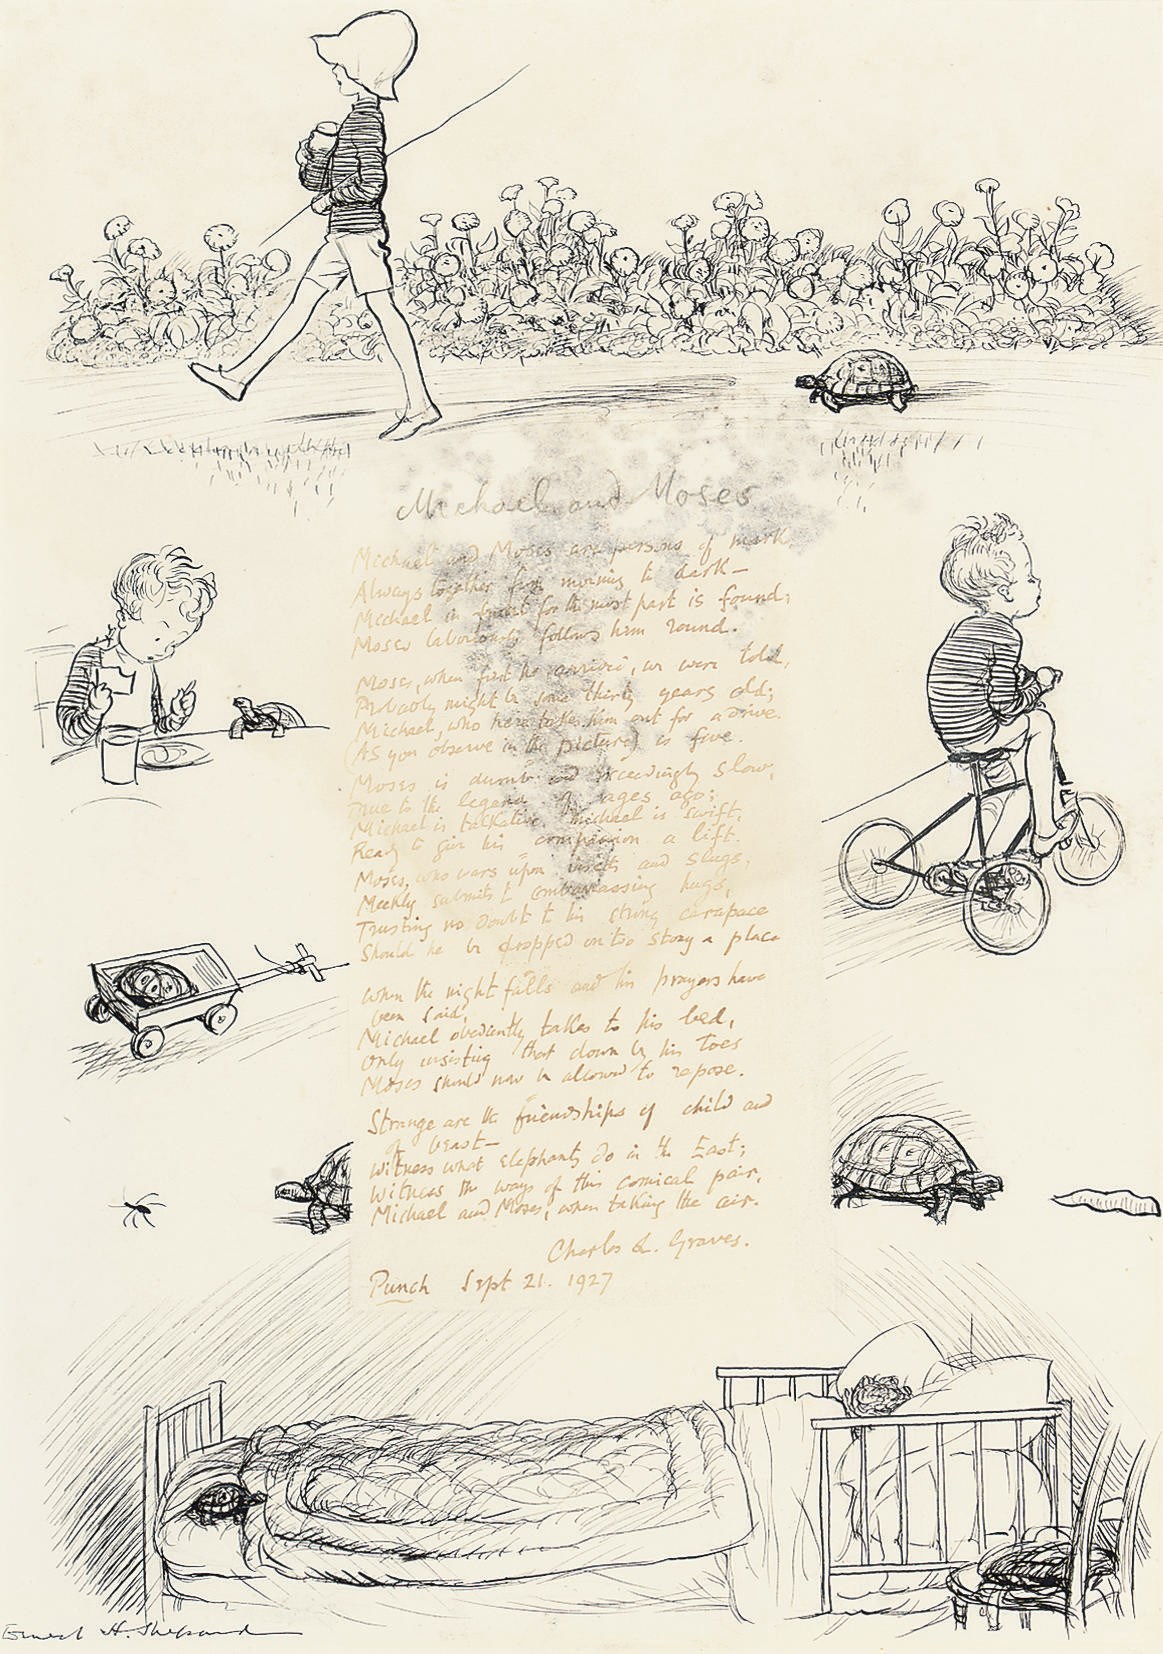 Michael and Moses
Michael and Moses are persons of mark
Always together from morning to dark—
Michael in front for the most part is found;
Moses laboriously follows him round.
Moses, when first he arrived, we were told,
Probably might be some thirty years old;
Michael, who here takes him out for a drive.
(As you observe in the picture) is five.
Moses is dumb and exceedingly slow,
True to the legend of ages ago;
Michael is talkative Michael is swift,
Ready to give his companion a lift.
Moses, who wars upon insects and slugs,
Meekly submits to embarrassing hugs,
Trusting no doubt to his strong carapace
Should he be dropped on too stony a place
When the night falls and his prayers have
been said,
Michael obediently takes to his bed,
Only insisting that down by his toes
Moses should now be allowed to repose.
Strange are the friendships of child and
of beast—
Witness what elephants do in the East;
Witness the ways of this comical pair,
Michael and Moses, when taking the air.
Charles L. Graves.
Punch Sept 21. 1927
Ernest H. Shepard